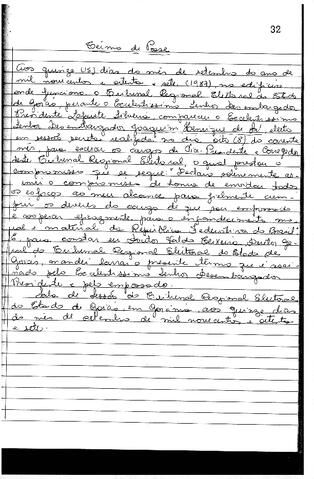 32
Termo de Posse
Aos quinze (15) dias do mês de setembro do ano de
mil novecentos e oitenta e sete (1987), no edifício
onde funciona o Tribunal Regional Eleitoral do Estado
de Goiás, perante o Excelentíssimo Senhor Desembargador
Presidente Lafaiete Silveira compareceu o Excelentíssimo
Senhor Desembargador Joaquim Henrique de Sá, eleito
em sessão secreta realizada no dia oito (8) do corrente
mês para exercer os cargos de Vice-Presidente e Corregedor
deste Tribunal Regional Eleitoral, o qual prestou o
compromisso que se segue: "Declaro solenemente as-
sumir o compromisso de honra de envidar todos
os esforços ao meu alcance para fielmente cum-
prir os deveres do cargo de que sou empossado
e cooperar eficazmente para o engrandecimento mo-
ral e material da República Federativa do Brasil".
E para constar eu Doutor Teixeira, Diretor Ge-
ral do Tribunal Regional Eleitoral do Estado de
Goiás, mandei lavrar o presente termo que é assi-
nado pelo Excelentíssimo Senhor Desembargador
Presidente e pelo empossado.
Sala de Sessão do Tribunal Regional Eleitoral
do Estado de Goiás em Goiânia, aos quinze dias
do mês de setembro de mil novecentos e oitenta
e sete.